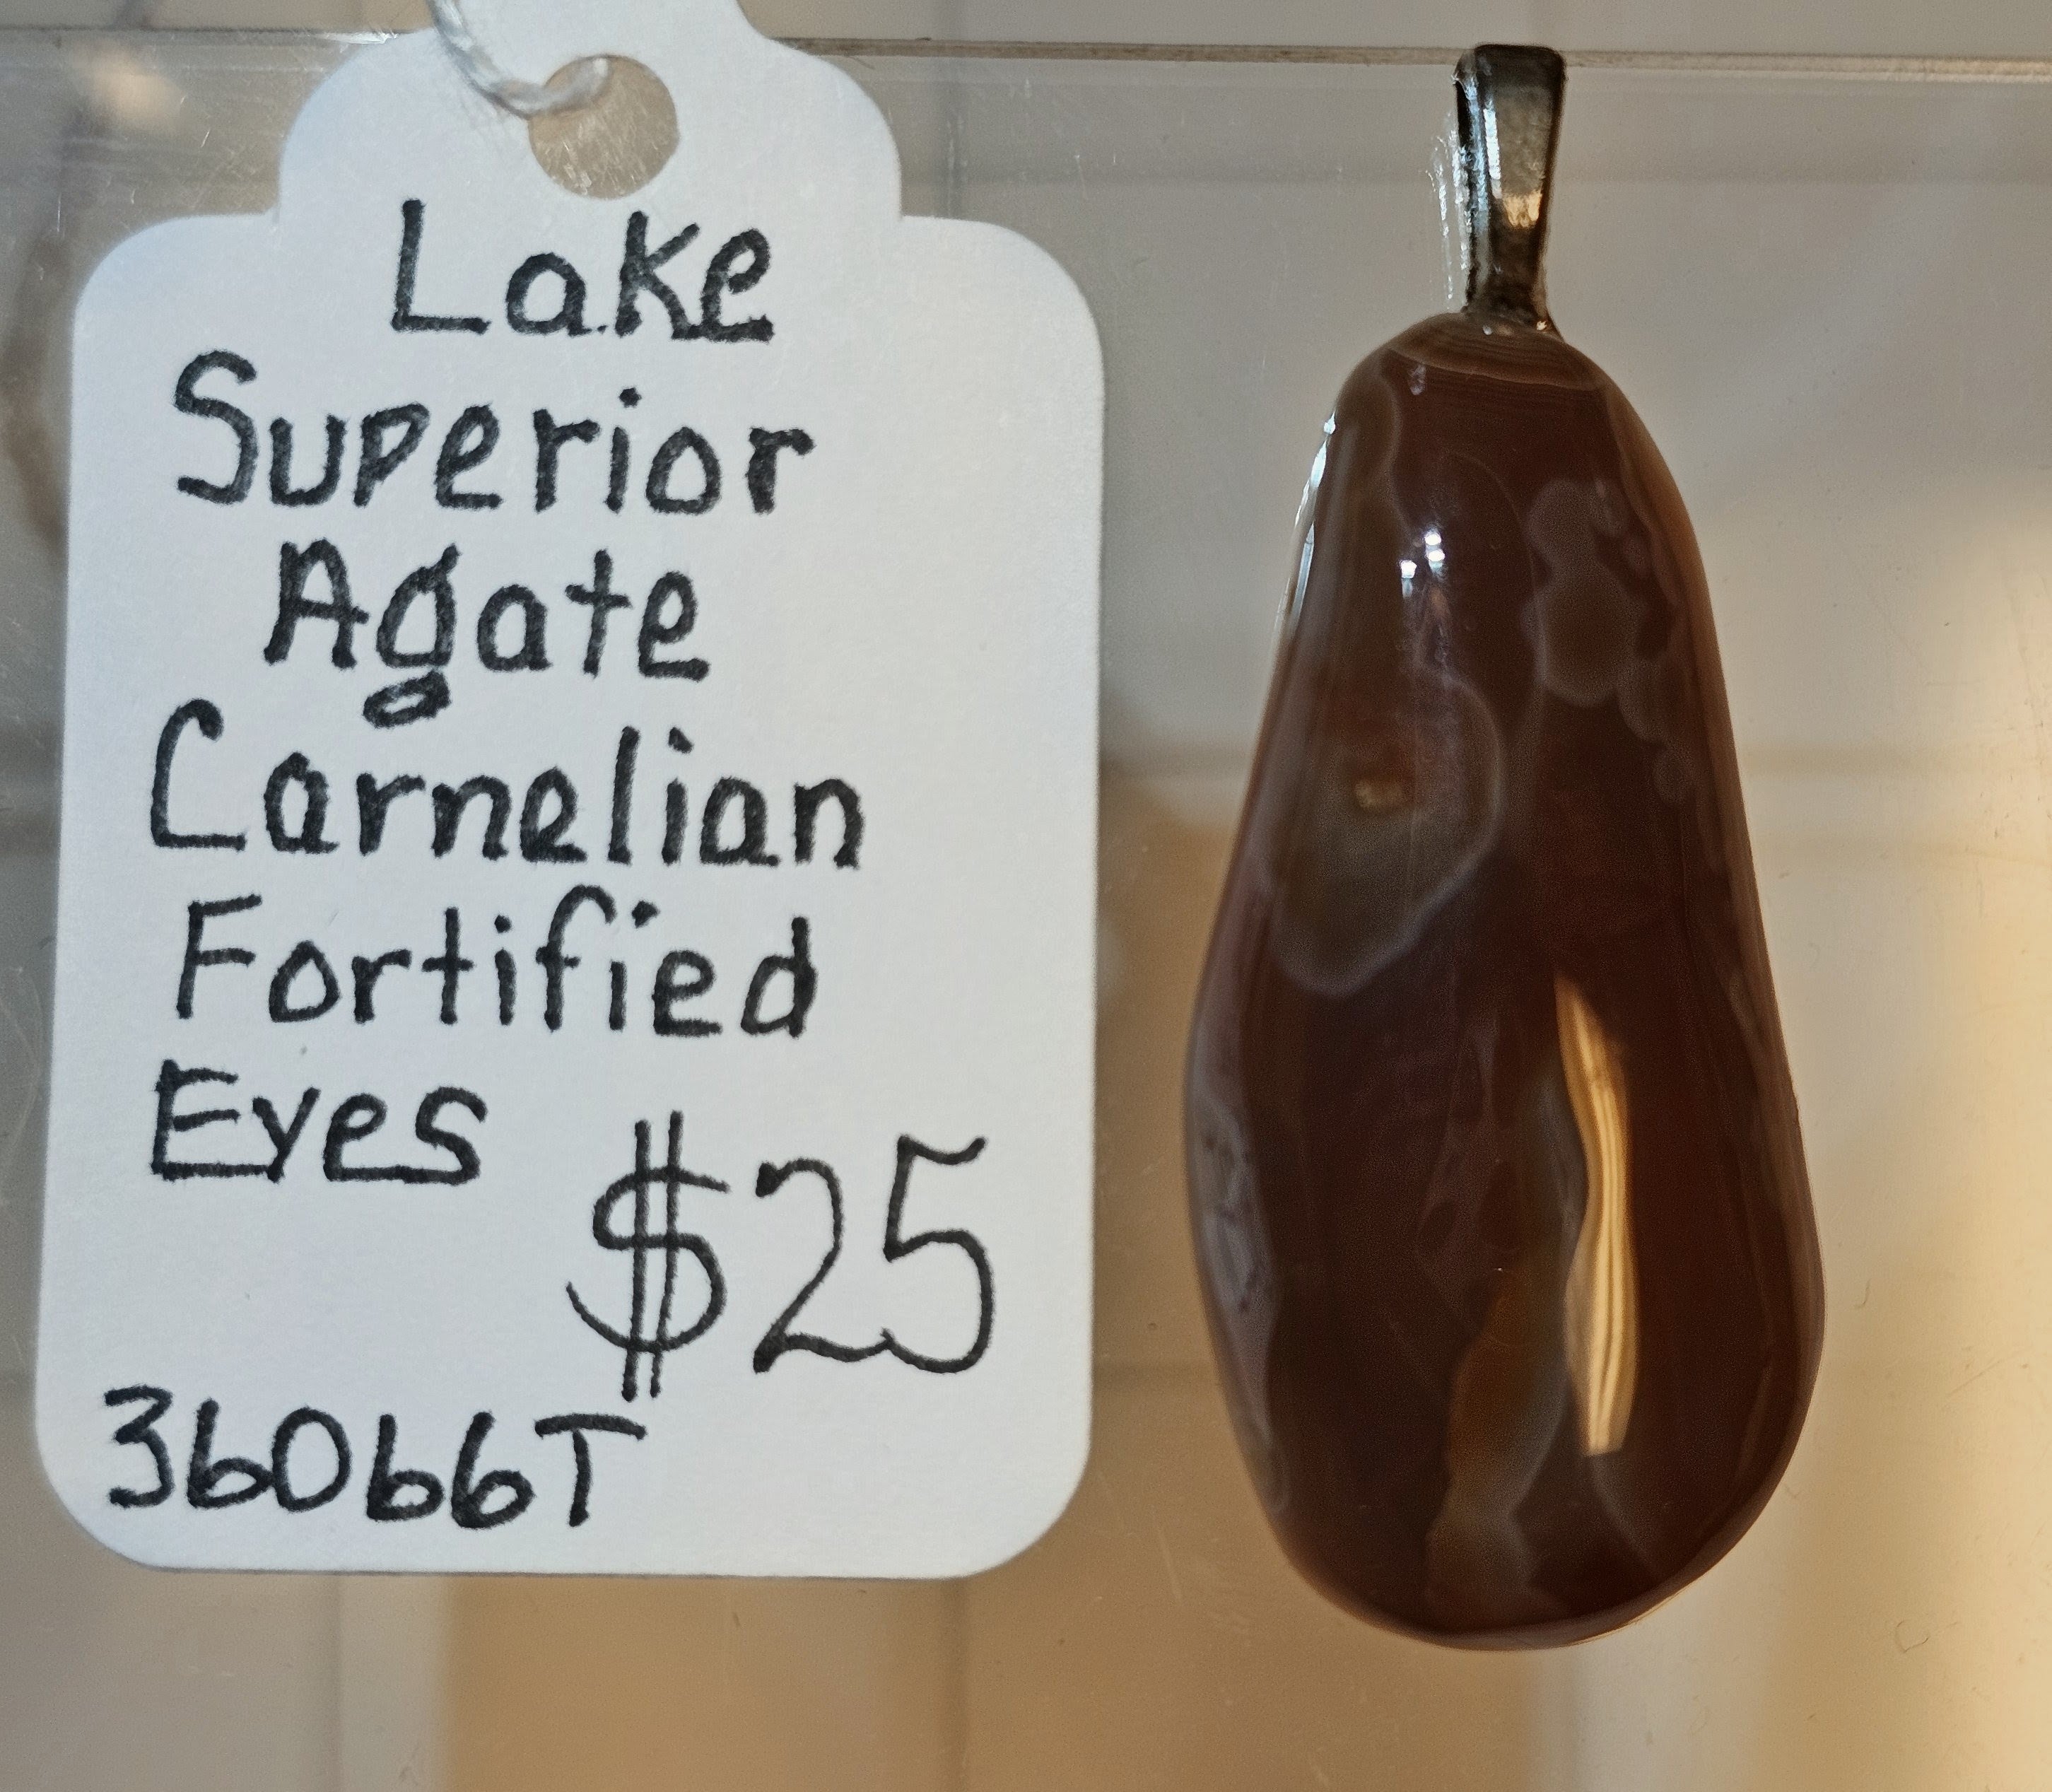 Lake
Superior
Agate
Carnelian
Fortified
Eyes
$25
36066T